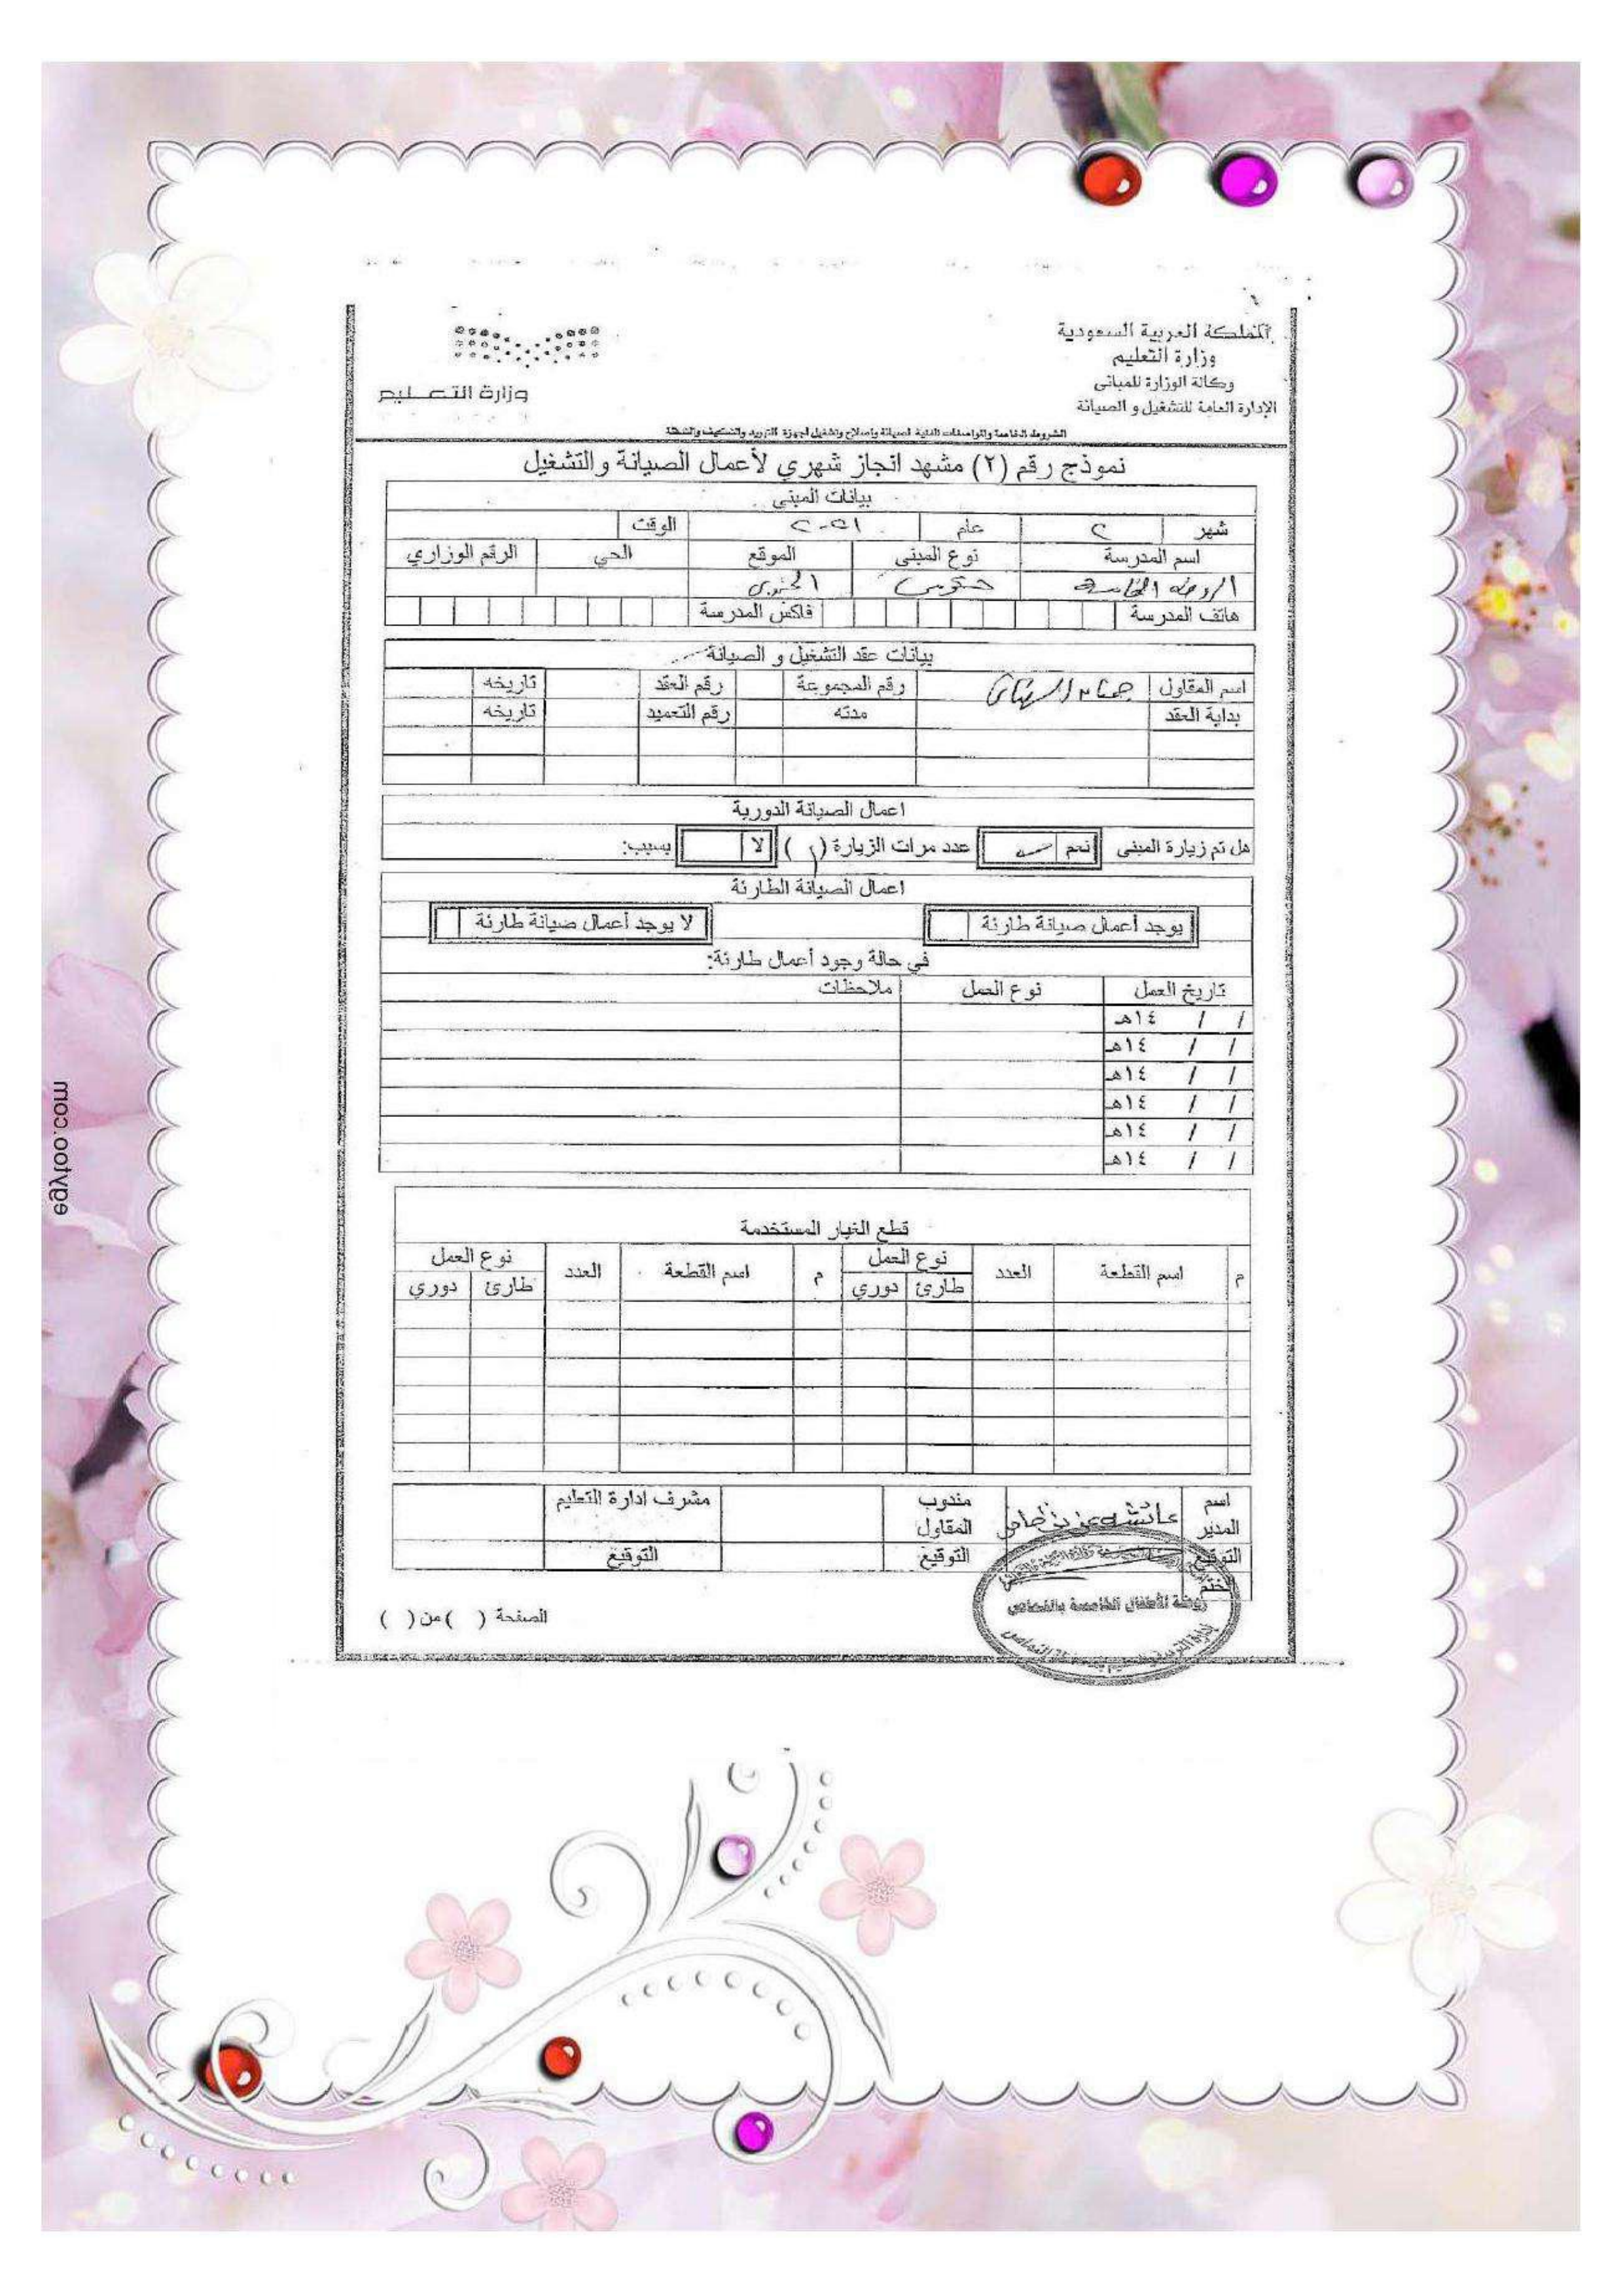 المملكة العربية السعودية
وزارة التعليم
وكالة الوزارة للمباني
الإدارة العامة للتشغيل و الصيانة
وزارة التعليم
الشروط الخاصة والمواصفات الفنية لصيانة وإصلاح وتشغيل أجهزة التبريد والتكييف
نموذج رقم (٢) مشهد انجاز شهري لأعمال الصيانة والتشغيل
بيانات المبنى
شهر ٢ عام الوقت
اسم المدرسة نوع المبنى الموقع الحي الرقم الوزاري
الروضة الخامسة حكومي
هاتف المدرسة فاكس المدرسة
بيانات عقد التشغيل و الصيانة
اسم المقاول رقم المجموعة رقم العقد تاريخه
بداية العقد مدته رقم التعميد تاريخه
اعمال الصيانة الدورية
هل تم زيارة المبنى نعم عدد مرات الزيارة ( ) لا بسبب:
اعمال الصيانة الطارئة
يوجد أعمال صيانة طارئة لا يوجد أعمال صيانة طارئة
في حالة وجود أعمال طارئة:
تاريخ العمل نوع العمل ملاحظات
/ / ١٤هـ
/ / ١٤هـ
/ / ١٤هـ
/ / ١٤هـ
/ / ١٤هـ
/ / ١٤هـ
قطع الغيار المستخدمة
م اسم القطعة العدد نوع العمل م اسم القطعة العدد نوع العمل
طارئ دوري طارئ دوري
اسم المدير عائشه مندوب المقاول مشرف ادارة التعليم
التوقيع التوقيع التوقيع
الختم
روضة الأطفال الخامسة بالنماص
الصفحة ( ) من ( )
egytoo.com